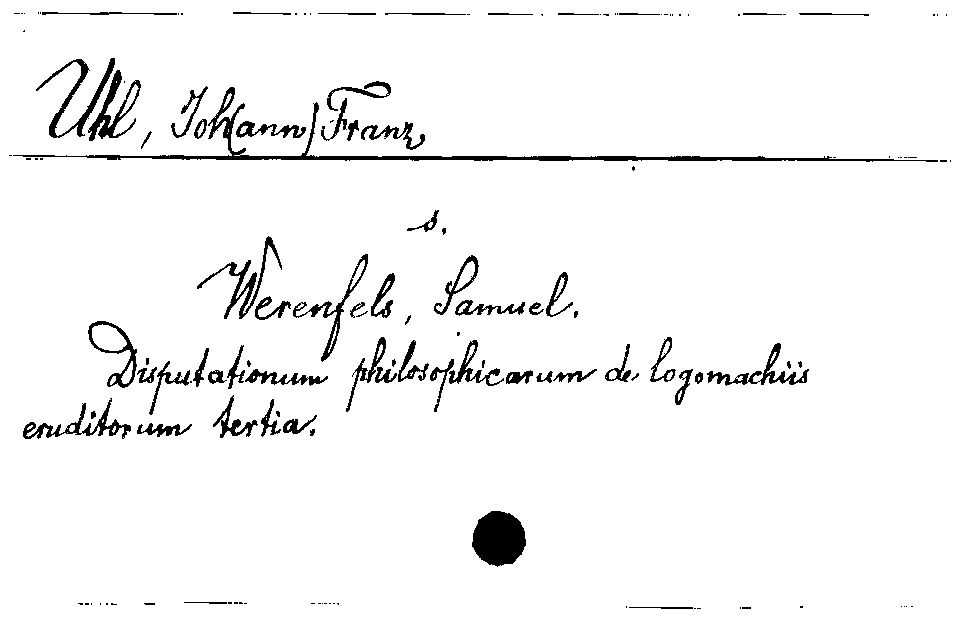 Uhl, Joh(ann) Franz
s.
Werenfels, Samuel.
Disputationum philosophicarum de logomachiis
eruditorum tertia.